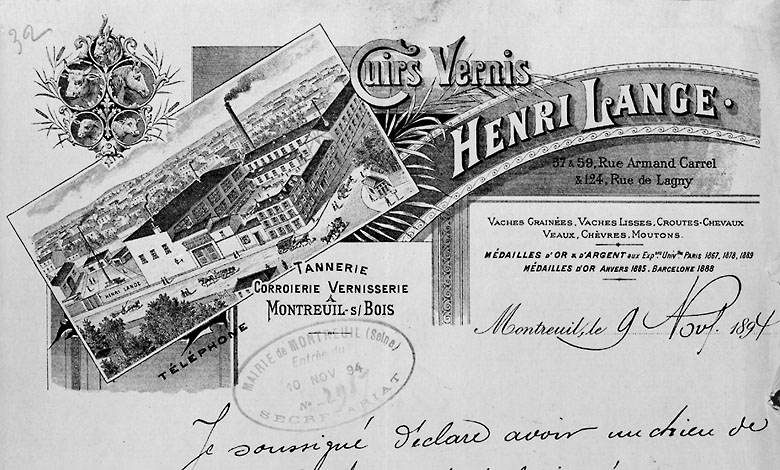 32
Cuirs Vernis
HENRI LANGE.
57 & 59, Rue Armand Carrel
& 124, Rue de Lagny
VACHES GRAINÉES, VACHES LISSES, CROUTES-CHEVAUX
VEAUX, CHÈVRES, MOUTONS.
MÉDAILLES D'OR & D'ARGENT aux Expons Univles PARIS 1867, 1878, 1889
MÉDAILLES D'OR ANVERS 1885. BARCELONE 1888
HENRI LANGE
TANNERIE
CORROIERIE VERNISSERIE
A
MONTREUIL-s/BOIS
TÉLÉPHONE
Montreuil, le 9 Nov. 1894
MAIRIE de MONTREUIL (Seine)
Entrée du
10 NOV 94
No
SECRÉTARIAT
Je soussigné déclare avoir un chien de